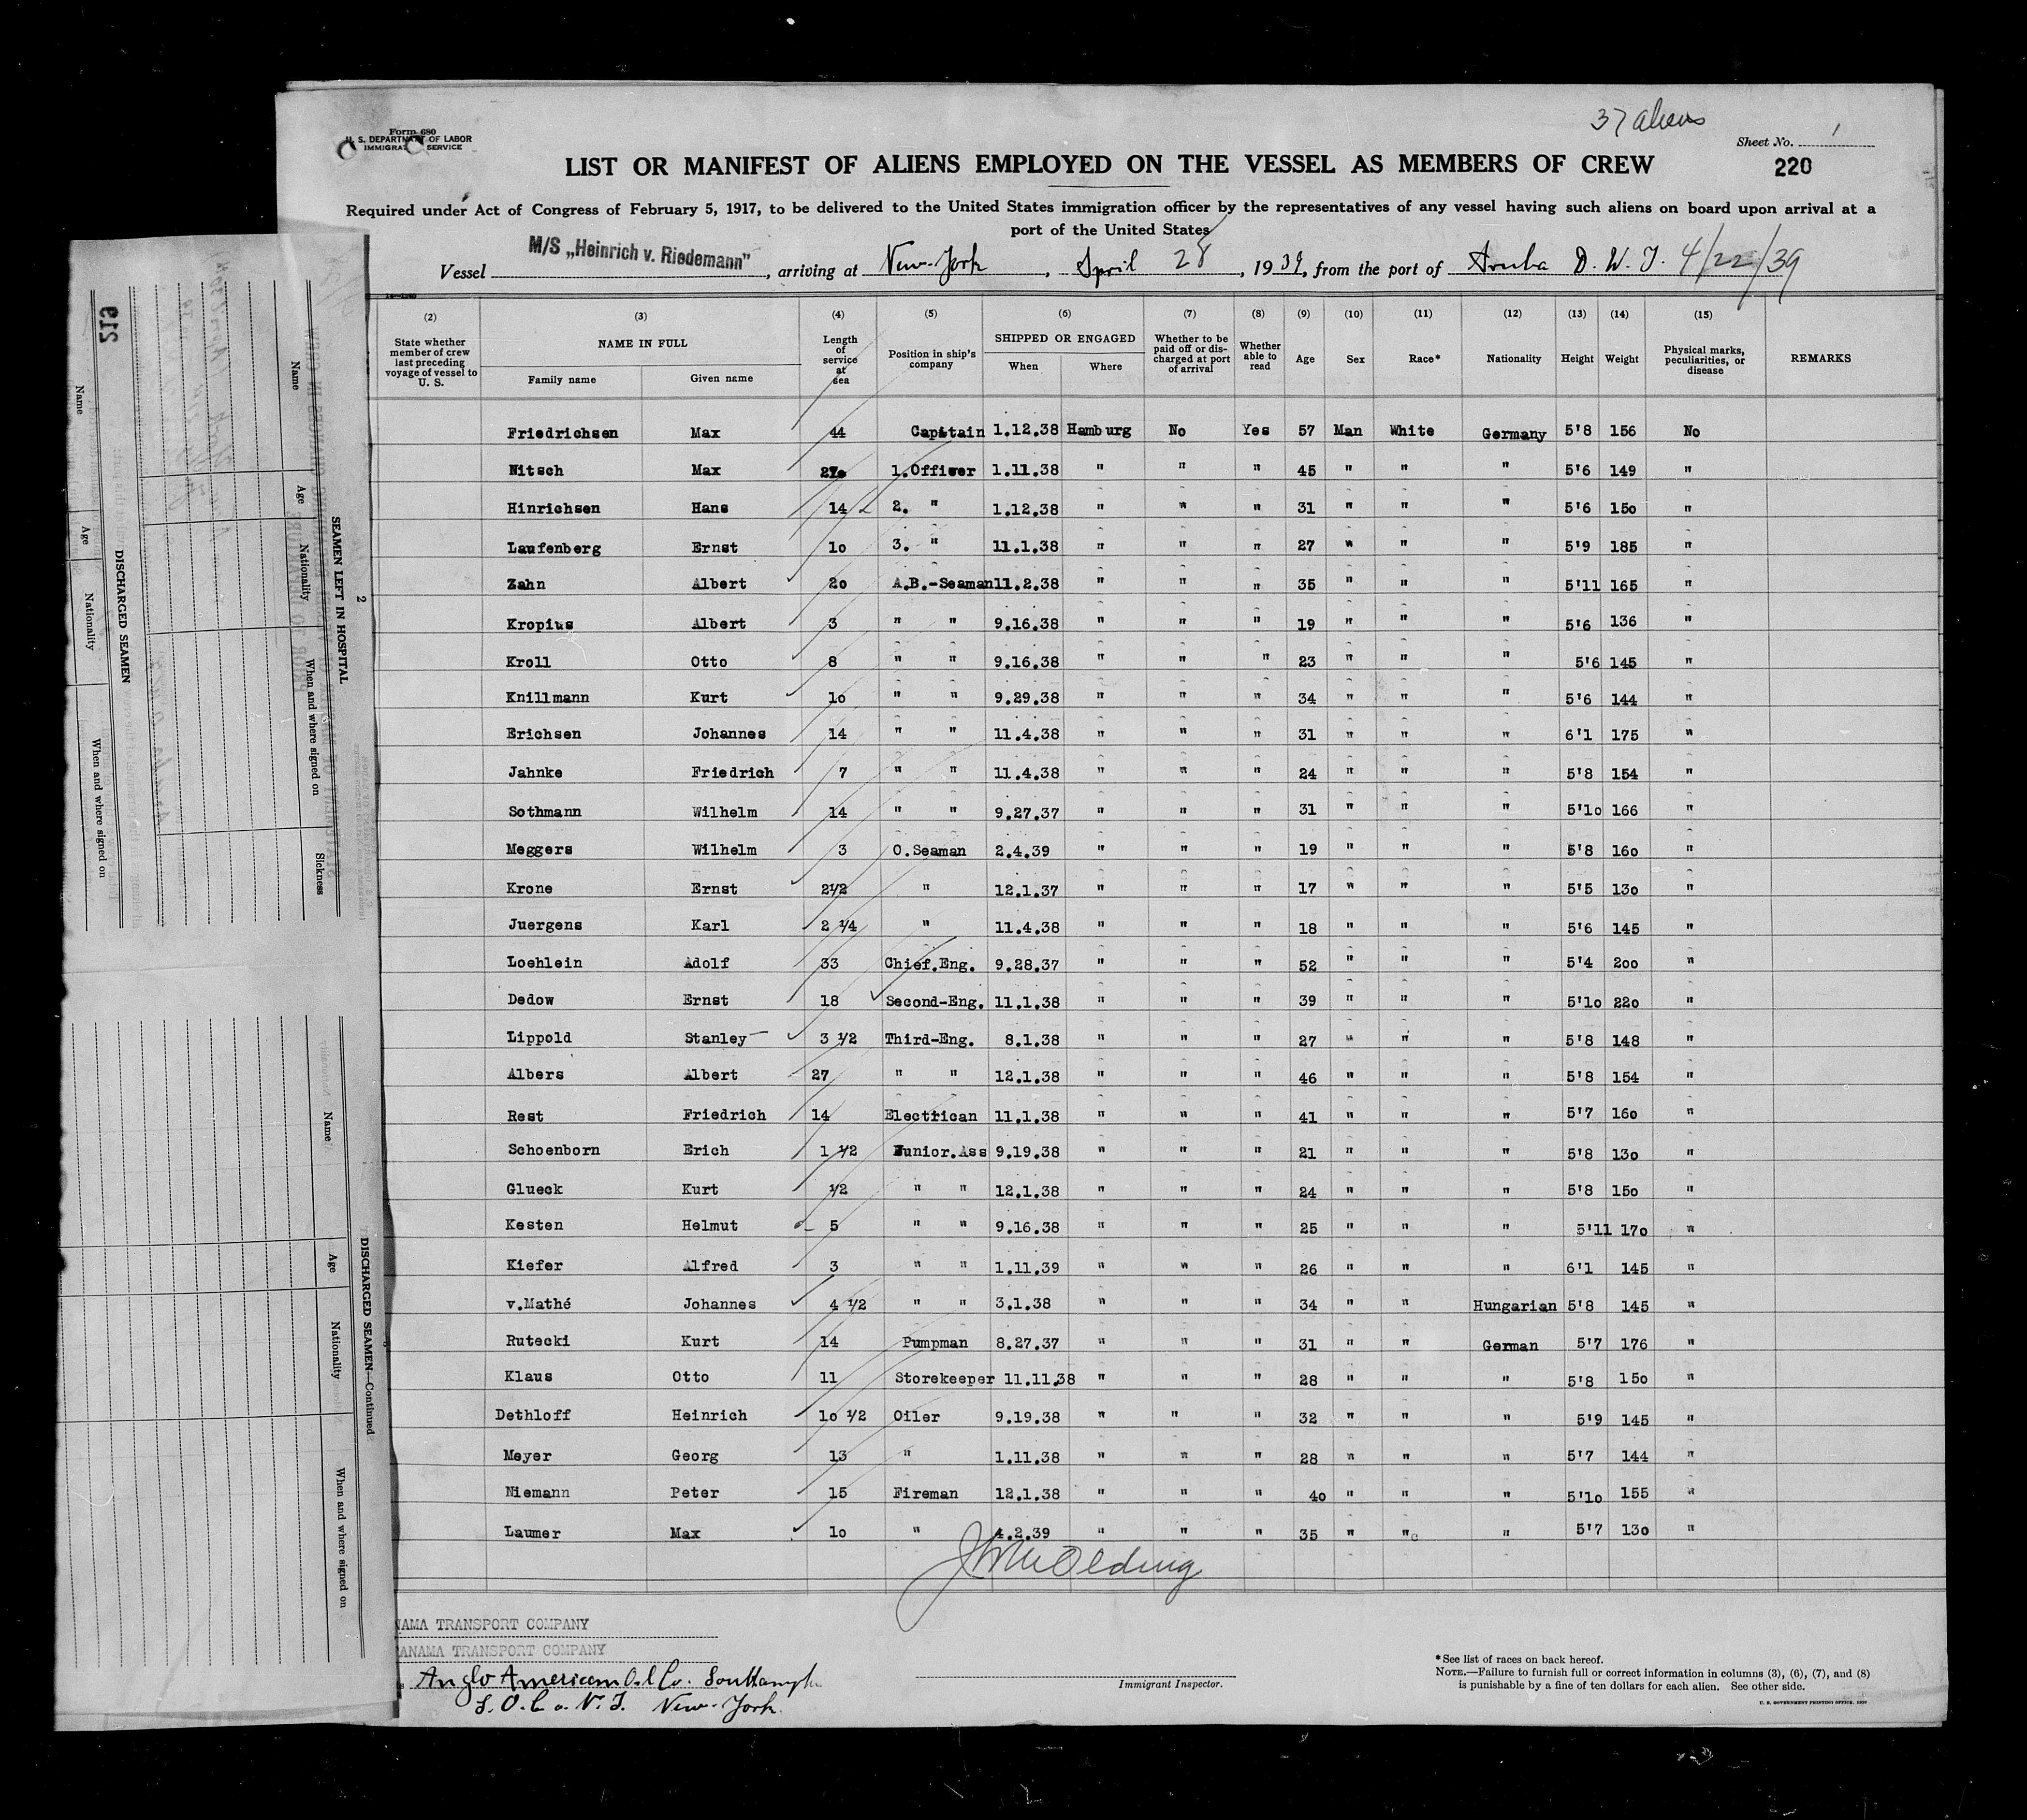 37 aliens
Form 680
U. S. DEPARTMENT OF LABOR
IMMIGRATION SERVICE
Sheet No. 1
LIST OR MANIFEST OF ALIENS EMPLOYED ON THE VESSEL AS MEMBERS OF CREW
220
Required under Act of Congress of February 5, 1917, to be delivered to the United States immigration officer by the representatives of any vessel having such aliens on board upon arrival at a
port of the United States
Vessel M/S „Heinrich v. Riedemann", arriving at New-York, April 28, 1939, from the port of Aruba D. W. I. 4/22/39
(2) (3) (4) (5) (6) (7) (8) (9) (10) (11) (12) (13) (14) (15)
State whether member of crew last preceding voyage of vessel to U. S. NAME IN FULL Family name Given name Length of service at sea Position in ship's company SHIPPED OR ENGAGED When Where Whether to be paid off or discharged at port of arrival Whether able to read Age Sex Race* Nationality Height Weight Physical marks, peculiarities, or disease REMARKS
Friedrichsen Max 44 Capitain 1.12.38 Hamburg No Yes 57 Man White Germany 5'8 156 No
Nitsch Max 27 1.Officer 1.11.38 " " " 45 " " " 5'6 149 "
Hinrichsen Hans 14 2. " 1.12.38 " " " 31 " " " 5'6 15o "
Laufenberg Ernst 1o 3. " 11.1.38 " " " 27 " " " 5'9 185 "
Zahn Albert 2o A.B.-Seaman 11.2.38 " " " 35 " " " 5'11 165 "
Kropius Albert 3 " " 9.16.38 " " " 19 " " " 5'6 136 "
Kroll Otto 8 " " 9.16.38 " " " 23 " " " 5'6 145 "
Knillmann Kurt 1o " " 9.29.38 " " " 34 " " " 5'6 144 "
Erichsen Johannes 14 " " 11.4.38 " " " 31 " " " 6'1 175 "
Jahnke Friedrich 7 " " 11.4.38 " " " 24 " " " 5'8 154 "
Sothmann Wilhelm 14 " " 9.27.37 " " " 31 " " " 5'1o 166 "
Meggers Wilhelm 3 O.Seaman 2.4.39 " " " 19 " " " 5'8 16o "
Krone Ernst 2½ " 12.1.37 " " " 17 " " " 5'5 13o "
Juergens Karl 2 ¼ " 11.4.38 " " " 18 " " " 5'6 145 "
Loehlein Adolf 33 Chief.Eng. 9.28.37 " " " 52 " " " 5'4 2oo "
Dedow Ernst 18 Second-Eng. 11.1.38 " " " 39 " " " 5'1o 22o "
Lippold Stanley 3 ½ Third-Eng. 8.1.38 " " " 27 " " " 5'8 148 "
Albers Albert 27 " " 12.1.38 " " " 46 " " " 5'8 154 "
Rest Friedrich 14 Electrican 11.1.38 " " " 41 " " " 5'7 16o "
Schoenborn Erich 1 ½ Junior.Ass 9.19.38 " " " 21 " " " 5'8 13o "
Glueck Kurt ½ " " 12.1.38 " " " 24 " " " 5'8 15o "
Kesten Helmut 5 " " 9.16.38 " " " 25 " " " 5'11 17o "
Kiefer Alfred 3 " " 1.11.39 " " " 26 " " " 6'1 145 "
v.Mathé Johannes 4 ½ " " 3.1.38 " " " 34 " " Hungarian 5'8 145 "
Rutecki Kurt 14 Pumpman 8.27.37 " " " 31 " " German 5'7 176 "
Klaus Otto 11 Storekeeper 11.11.38 " " " 28 " " " 5'8 15o "
Dethloff Heinrich 1o ½ Oiler 9.19.38 " " " 32 " " " 5'9 145 "
Meyer Georg 13 " 1.11.38 " " " 28 " " " 5'7 144 "
Niemann Peter 15 Fireman 12.1.38 " " " 4o " " " 5'1o 155 "
Laumer Max 1o " 4.2.39 " " " 35 " " " 5'7 13o "
NAMA TRANSPORT COMPANY
ANAMA TRANSPORT COMPANY
Anglo American Oil Co. Southampt
S. O. C. o. N. J. New-York.
Immigrant Inspector.
*See list of races on back hereof.
NOTE.—Failure to furnish full or correct information in columns (3), (6), (7), and (8)
is punishable by a fine of ten dollars for each alien. See other side.
U. S. GOVERNMENT PRINTING OFFICE
219
2
SEAMEN LEFT IN HOSPITAL
Name Age Nationality When and where signed on Sickness
DISCHARGED SEAMEN
Name Age Nationality When and where signed on
DISCHARGED SEAMEN—Continued
Name Age Nationality When and where signed on